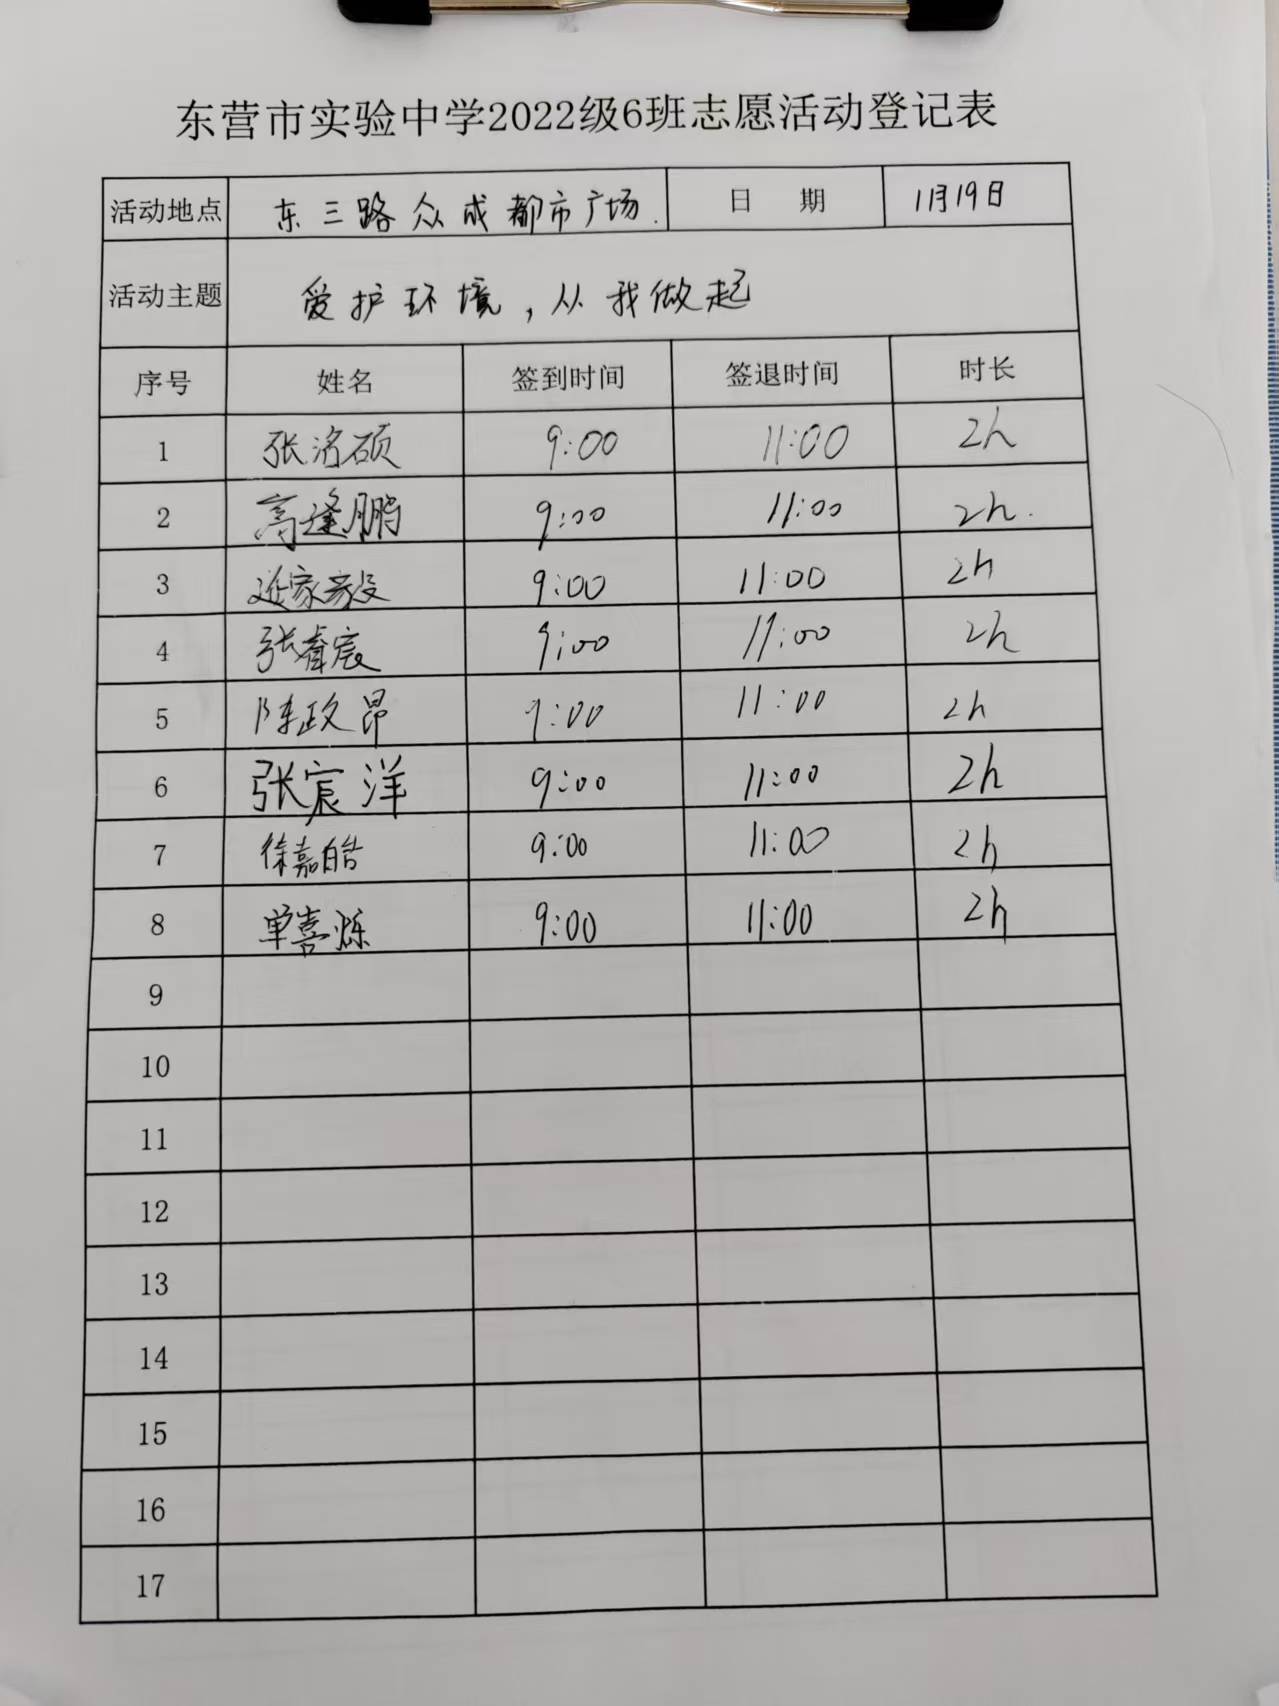 东营市实验中学2022级6班志愿活动登记表
活动地点 东三路众成都市广场. 日 期 11月19日
活动主题 爱护环境,从我做起
序号 姓名 签到时间 签退时间 时长
1 张洺硕 9:00 11:00 2h
2 高逢鹏 9:00 11:00 2h.
3 家毅 9:00 11:00 2h
4 张睿宸 9:00 11:00 2h
5 陈政昂 9:00 11:00 2h
6 张宸洋 9:00 11:00 2h
7 徐嘉皓 9:00 11:00 2h
8 单喜烁 9:00 11:00 2h
9
10
11
12
13
14
15
16
17